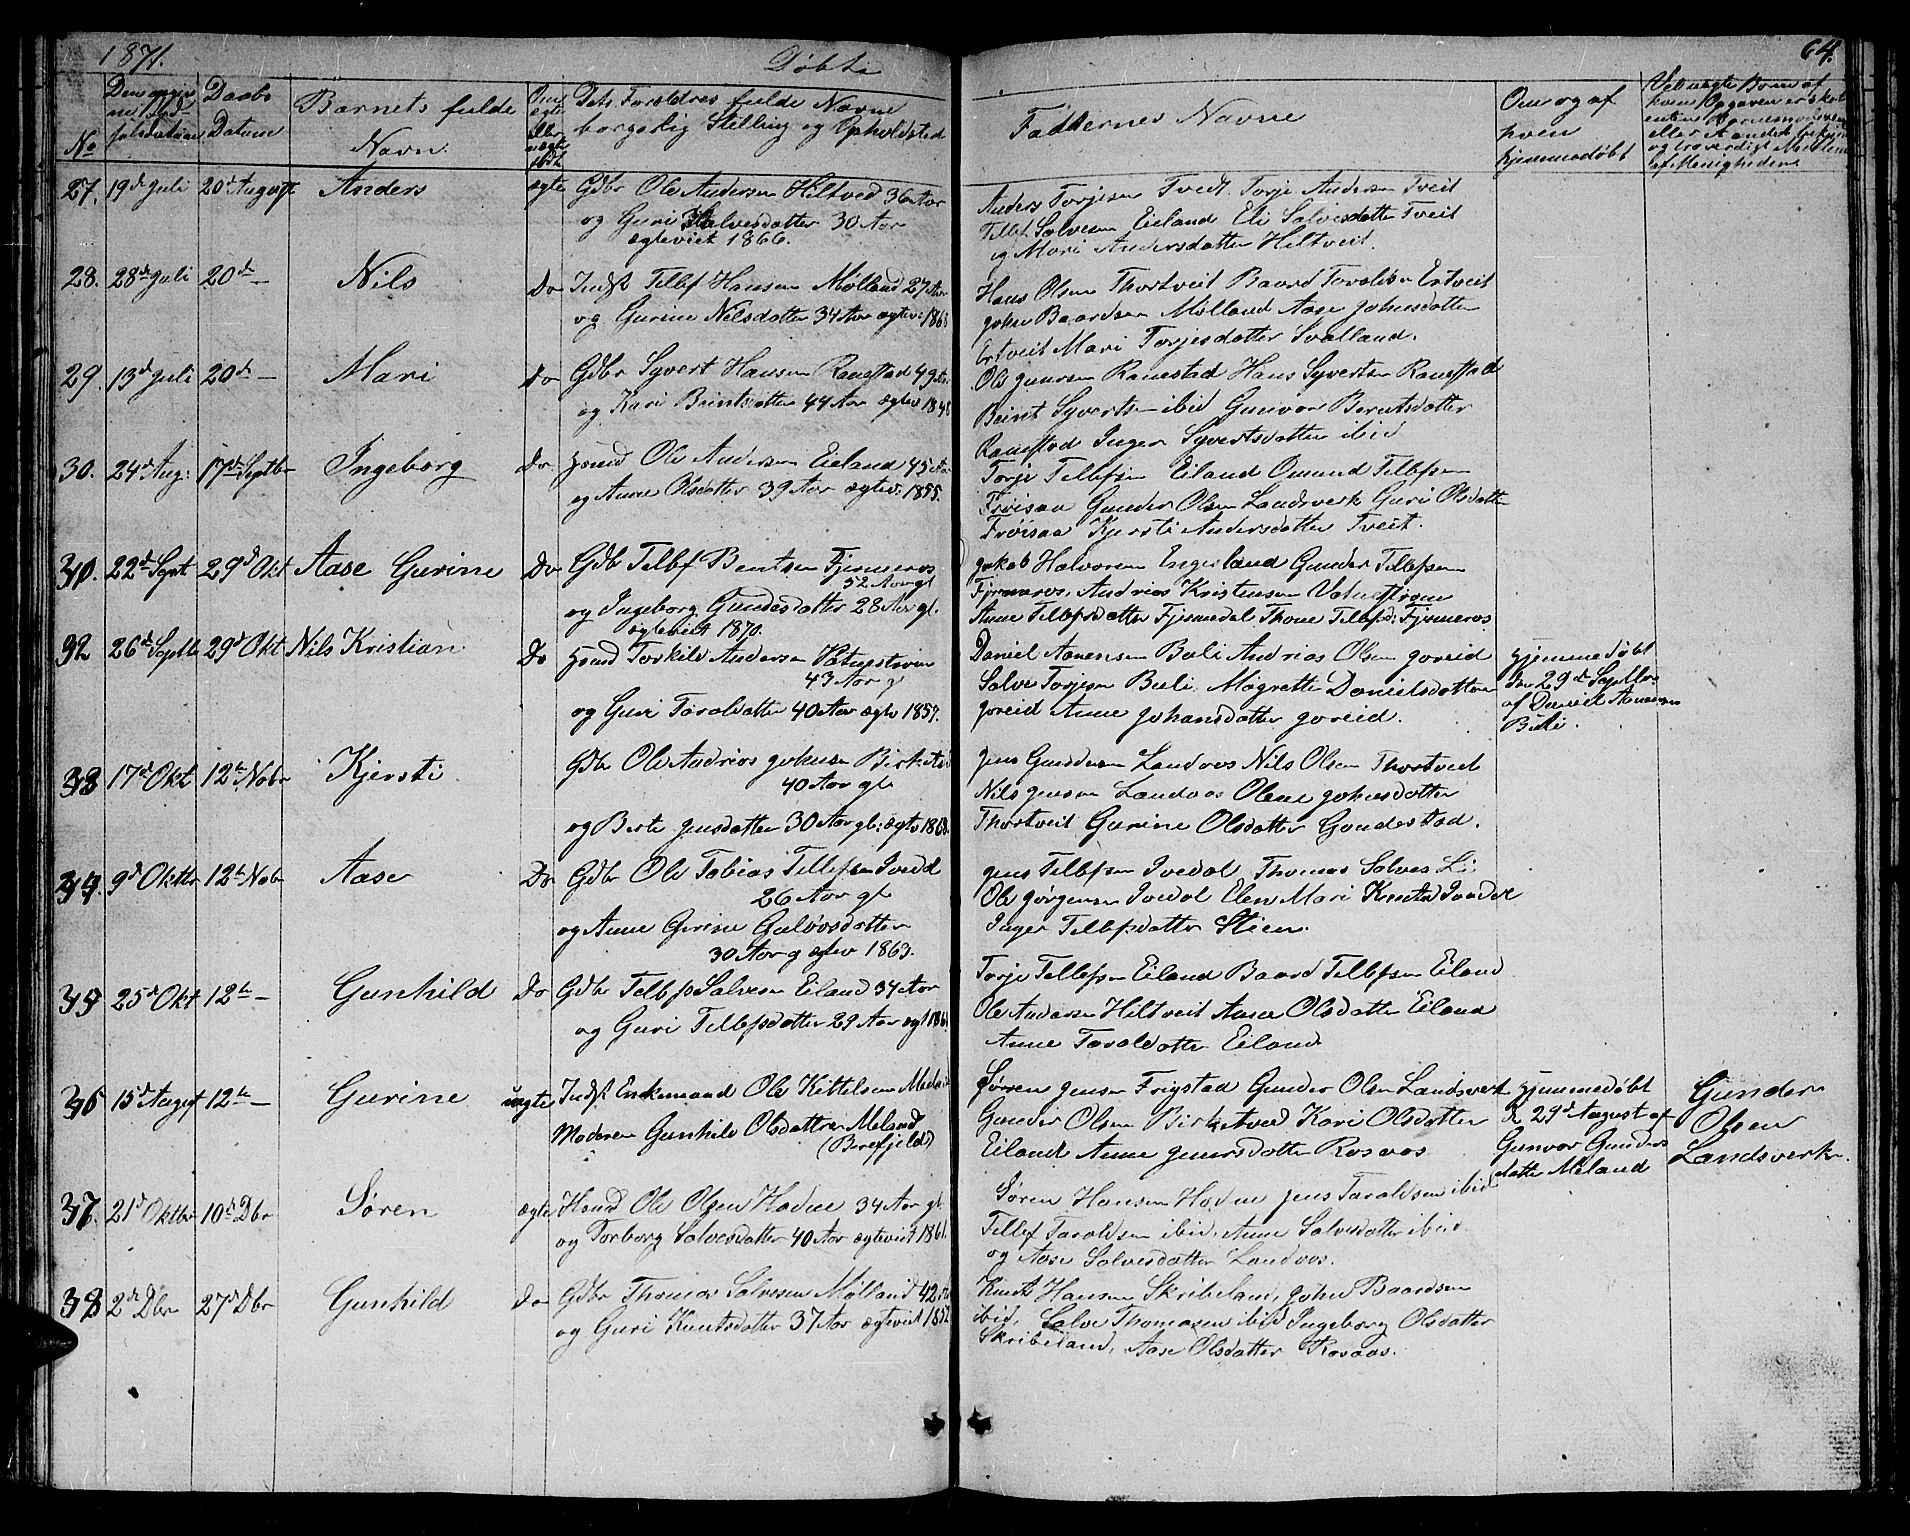 1871.
Døbte
64.
No
Den opgivne Fødselsdatum
Daabs Datum
Barnets fulde Navn.
Om ægte eller uægte født
Dets Forældres fulde Navne borgerlig Stilling og Opholdsted
Faddernes Navne
Om og af hven hjemmedøbt
Ved uægte Børn af hvem Opgaven er skeet enten
27. 19d Juli 20d August Anders ægte Gdbr Ole Andersen Hiltved 36 Aar
og Guri Salvesdatter 30 Aar
ægteviet 1866.
Anders Torjesen Tvedt. Torje Andersen Tveit
Tellef Salvesen Eieland Eli Salvesdatter Tveit
og Mari Andersdatter Hiltveit.
28. 28de Juli 20de — Nils Do Indst Tellef Hansen Mølland 27 Aar
og Gurine Nilsdatter 34 Aar ægtev: 1868
Hans Olsen Thortveit Baard Taralsen Ertveit
John Baardsen Mølland Aase Johnsdatter
Ertveit Mari Torjesdatter Svaland.
29. 13d Juli 20de — Mari Do Gdbr Syvert Hansen Ranestad 49 Aar
og Kari Beintsdatter 44 Aar ægtev 1848
Ole Gunrsen Ranestad Hans Syvertsen Ranestad
Beint Syvertsen ibid Gunvor Berntsdatter
Ranestad Inger Syvertsdatter ibid
30. 24d Aug: 17de Septbr Ingeborg Do Hsmd Ole Andersen Eieland 45 Aar
og Anne Olsdatter 39 Aar ægtev: 1855.
Torje Tellefsen Eiland Omund Tellefsen
Frøisaa Gunder Olsen Landsverk Guri Olsdatter
Frøisaa Kjersti Andersdatter Tveit.
22de Sept 29d Okt Aase Gurine Do Gdbr Tellef Bentsen Fjermeros
52 Aar gl
og Ingeborg Gundersdatter 28 Aar gl.
ægteviet 1870.
Jakob Halvorsen Engesland Gunder Tellefsen
Fjermeros, Andrias Kristensen Vatnestrøm
Anne Tellefsdatter Fjermedal Thone Tellefsd: Fjermeros.
32 26de Septb 29d Okt Nils Kristian Do Hsmd Torkild Andersen Vatnestrøm
43 Aar gl
og Guri Taraldsdatter 40 Aar ægtv 1857.
Daniel Aanensen Beli Andrias Olsen Goreid
Salve Torjesen Beli, Magrette Danielsdatter
Goreid Anne Johansdatter Goreid.
Hjemmedøbt
den 29de Septbr
af Daniel Aanensen
Beli.
33 17d Okt 12te Nobr Kjersti Gdbr Ole Andrias Johnsen Birketved
40 Aar gl
og Berte Jensdatter 30 Aar gl: ægtv 1868
Jens Gundersen Landaas Nils Olsen Thortveit
Nils Jensen Landaas Olene Johnsdatter
Thortveit Gurine Olsdatter Gaudestad.
34. 9d Oktbr 12te Nobr Aase Do Gdbr Ole Tobias Tellefsen Ivedal
26 Aar gl
og Anne Gurine Gulovsdatter
30 Aar g ægtev 1863.
Jens Tellefsen Ivedal Thomas Salves Li
Ole Jørgensen Ivedal Elen Mari Knutsd Ivedal
Inger Tellefsdatter Stien.
35 25d Okt 12te — Gunhild Do Gdbr Tellef Salvesen Eiland 34 Aar
og Guri Tellefsdatter 29 Aar ægt 1861
Torje Tellefsen Eiland Baard Tellefsen Eiland
Ole Andersen Hiltveit Anne Olsdatter Eiland
Anne Taraldsdatter Eiland
36 15d August 12te — Gurine uægte Indst Enkemand Ole Kittelsen Meland
Moderen Gunhild Olsdatter Meland
(Berefjeld)
Søren Jensen Frigstad Gunder Olsen Landsverk
Gunder Olsen Birketved Kari Olsdatter
Eiland Anne Gunersdatter Rosaas
Hjemmedøbt
d. 29d August af
Gunvor Gunders
datter Meland
Gunder
Olsen
Landsverk.
37. 21d Oktbr 10de Dbr Søren ægte Hsmd Ole Olsen Hodne 34 Aar gl.
og Torborg Salvesdatter 40 Aar ægteviet 1861.
Søren Hansen Hodne Jens Taraldsen ibid
Tellef Taraldsen ibid, Anne Salvesdatter ibid
og Aase Salvesdatter Landaas.
38 2de Dbr 27de Dbr Gunhild Do Gdbr Thomas Salvesen Mølland 42 Aar
og Guri Knutsdatter 37 Aar ægteviet 1852
Knut Hansen Skribeland, John Baardsen
ibid, Salve Thomasen ibid Ingeborg Olsdatter
Skribeland, Aase Olsdatter Rosaas.